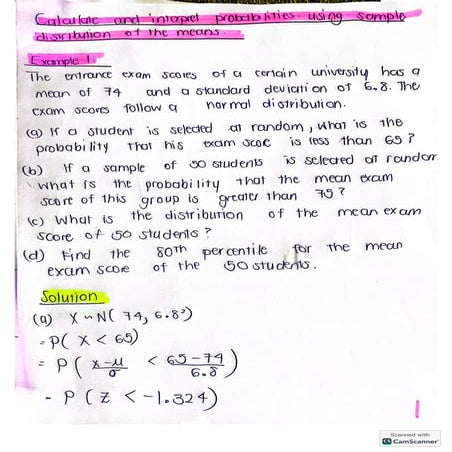 Calculate and interpret probabilities using sample
distribution of the means.
Example 1.
The entrance exam scores of a certain university has a
mean of 74 and a standard deviation of 6.8. The
exam scores follow a normal distribution.
(a) If a student is selected at random, what is the
probability that his exam score is less than 65?
(b) If a sample of 50 students is selected at random
what is the probability that the mean exam
score of this group is greater than 75?
(c) What is the distribution of the mean exam
score of 50 students?
(d) Find the 80th percentile for the mean
exam score of the 50 students.
Solution
(a) X ~ N( 74, 6.8²)
= P( X < 65)
= P( x-μ/σ < 65-74/6.8 )
= P ( Z < -1.324)
1
Scanned with
CS CamScanner